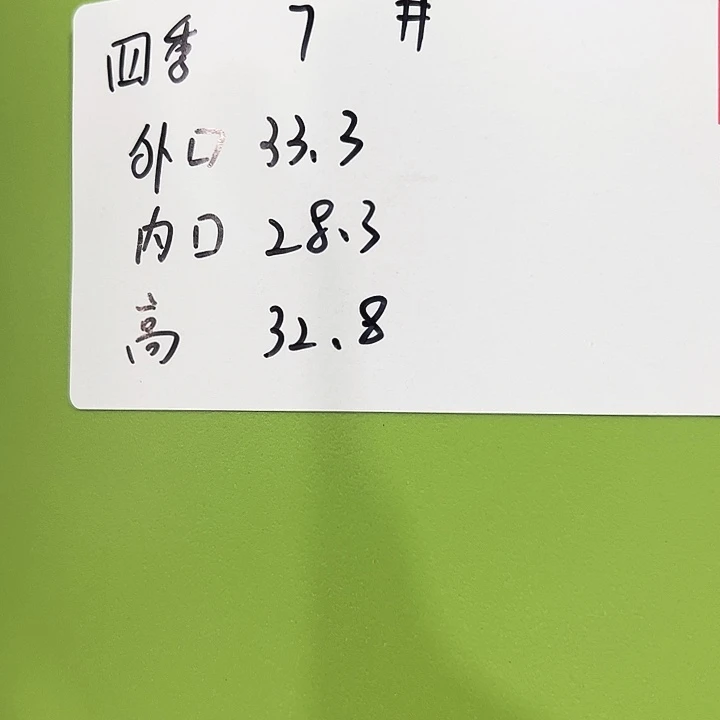 四季 7 #
外口 33.3
内口 28.3
高 32.8